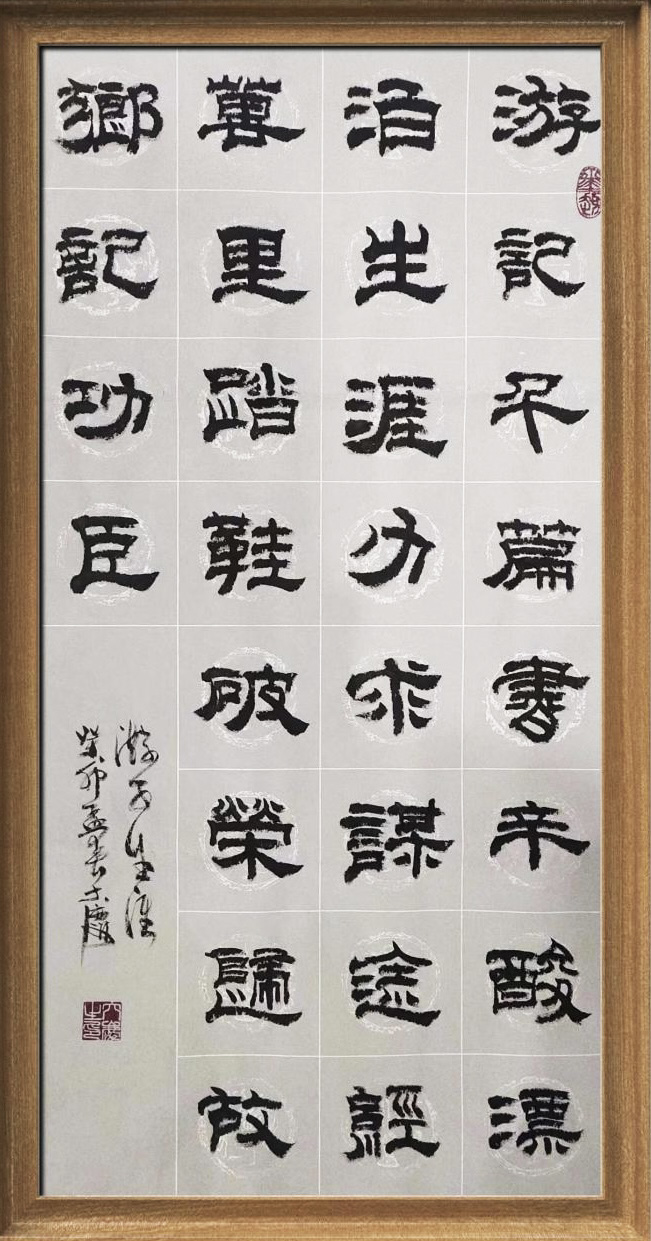 游記千篇書辛酸漂
泊生涯力求謀途經
萬里踏鞋破榮歸故
鄉記功臣
游子生涯
癸卯孟春大慶